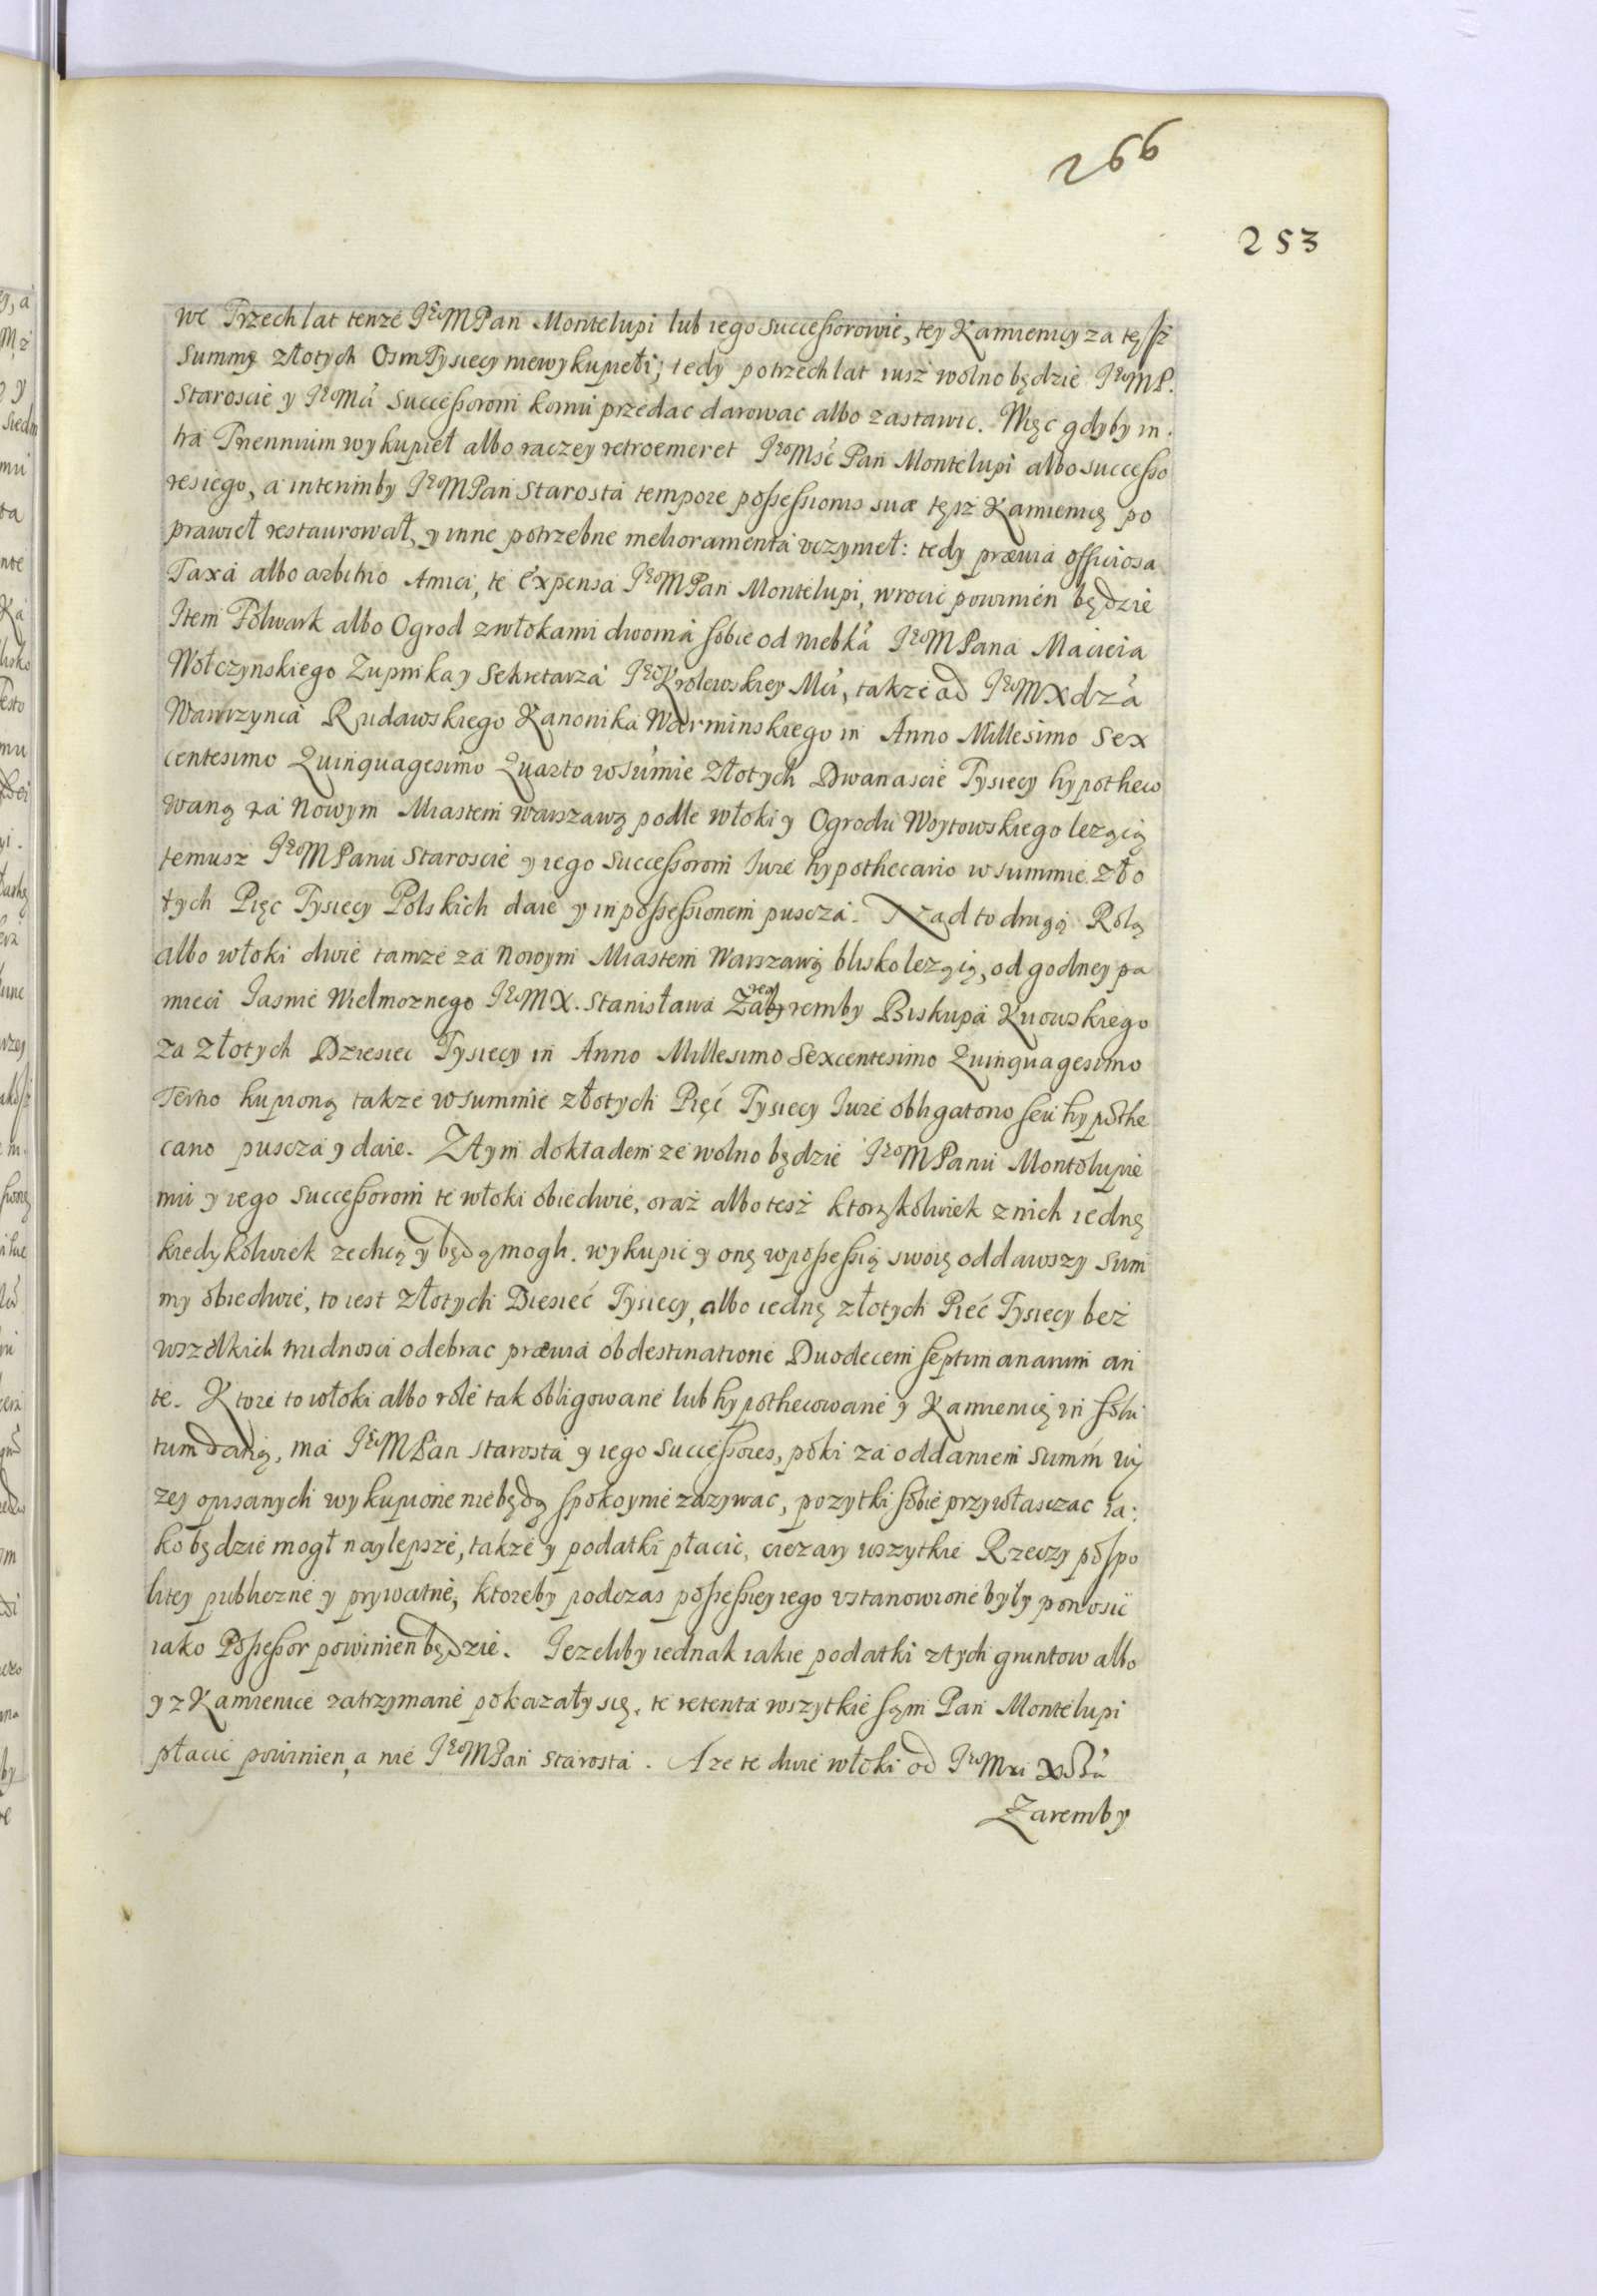 266
253
we Trzech lat tenże JEoMPan Montelupi lub iego successorowie, tey Kamienicy za tęsz
Summę złotych OsmTysiecy niewykupieli; tedy potrzech lat iusz wolno będzie JEoMP.
Staroscie y JEoMci Successorom komu przedac darowac albo zastawic. Więc gdyby in
tra Triennium wykupieł albo raczey retroemeret JEoMść Pan Montelupi albo successo
res iego, a interimby JEoMPan Starosta tempore possessionis suæ tęsz Kamienicę po
prawieł restaurował, y inne potrzebne melioramenta vczynieł: tedy prævia officiosa
Taxa albo arbitrio Amici, te expensa JEoMPan Montelupi, wrocic powinien będzie
Item Folwark albo Ogrod zwłokami dwoma sobie od niebka JEoMPana Macieia
Wołczynskiego Zupnika y Sekretarza JEoKrolewskiey Mci, takze od JEoMXdza
Wawrzynca Rudawskiego Kanonika Warminskiego in Anno Millesimo Sex
centesimo Quinquagesimo Quarto wsumie Złotych Dwanascie Tysiecy hypotheco
waną za Nowym Miastem Warszawą podle włoki y Ogrodu Woytowskiego lezącą
temusz JEoMPanu Staroscie y iego Successorom Iure hypothecario w summie zło
tych Pięc Tysiecy Polskich daie y in possessionem puscza. Nzad to drugą Rolą
albo włoki dwie tamze za Nowym Miastem Warszawą blisko lezącą, od godney pa
mieci Jasnie Wielmoznego JEoMX. Stanisława Zaremby Biskupa Kiiowskiego
za złotych Dziesiec Tysiecy in Anno Millesimo Sexcentesimo Quinquagesimo
Tertio kupioną takze wsummie złotych Pięć Tysiecy Iure obligatorio seu hypothe
cario puscza y daie. Ztym dokładem ze wolno będzie JEoMPanu Montelupie
mu y iego Successorom te włoki obiedwie, oraz albo tesz ktorązkolwiek z nich iedną
kiedykolwiek zechcą y będą mogli. wykupic y onę wpossessią swoię oddawszy Sum
my obiedwie, to iest złotych Diesieć Tysiecy, albo iednę złotych Pieć Tysiecy bez
wszelkich trudnosci odebrac prævia obdestinatione Duodecem septimanarum an
te. Ktore to włoki albo role tak obligowane lub hypothecowane y Kamienicę in solu
tum daną, ma JEoMPan Starosta y iego Successores, poki za oddaniem Summ wy
zey opisanych wykupione niebędą spokoynie zazywac, pozytki sobie przywłasczac ia:
ko będzie mogł naylepsze, takze y podatki płacic, ciezary wszytkie Rzeczy pospo
litey publiczne y prywatne, ktoreby podczas possessiey iego vstanowione były ponosic
iako Possessor powinien będzie. Jezeliby iednak iakie podatki ztych gruntow albo
y z Kamienice zatrzymane pokazały się, te retenta wszytkie sąm Pan Montelupi
płacic powinien, a nie JEoMPan Starosta. A ze te dwie włoki od JEoMci Xdza
Zaremby